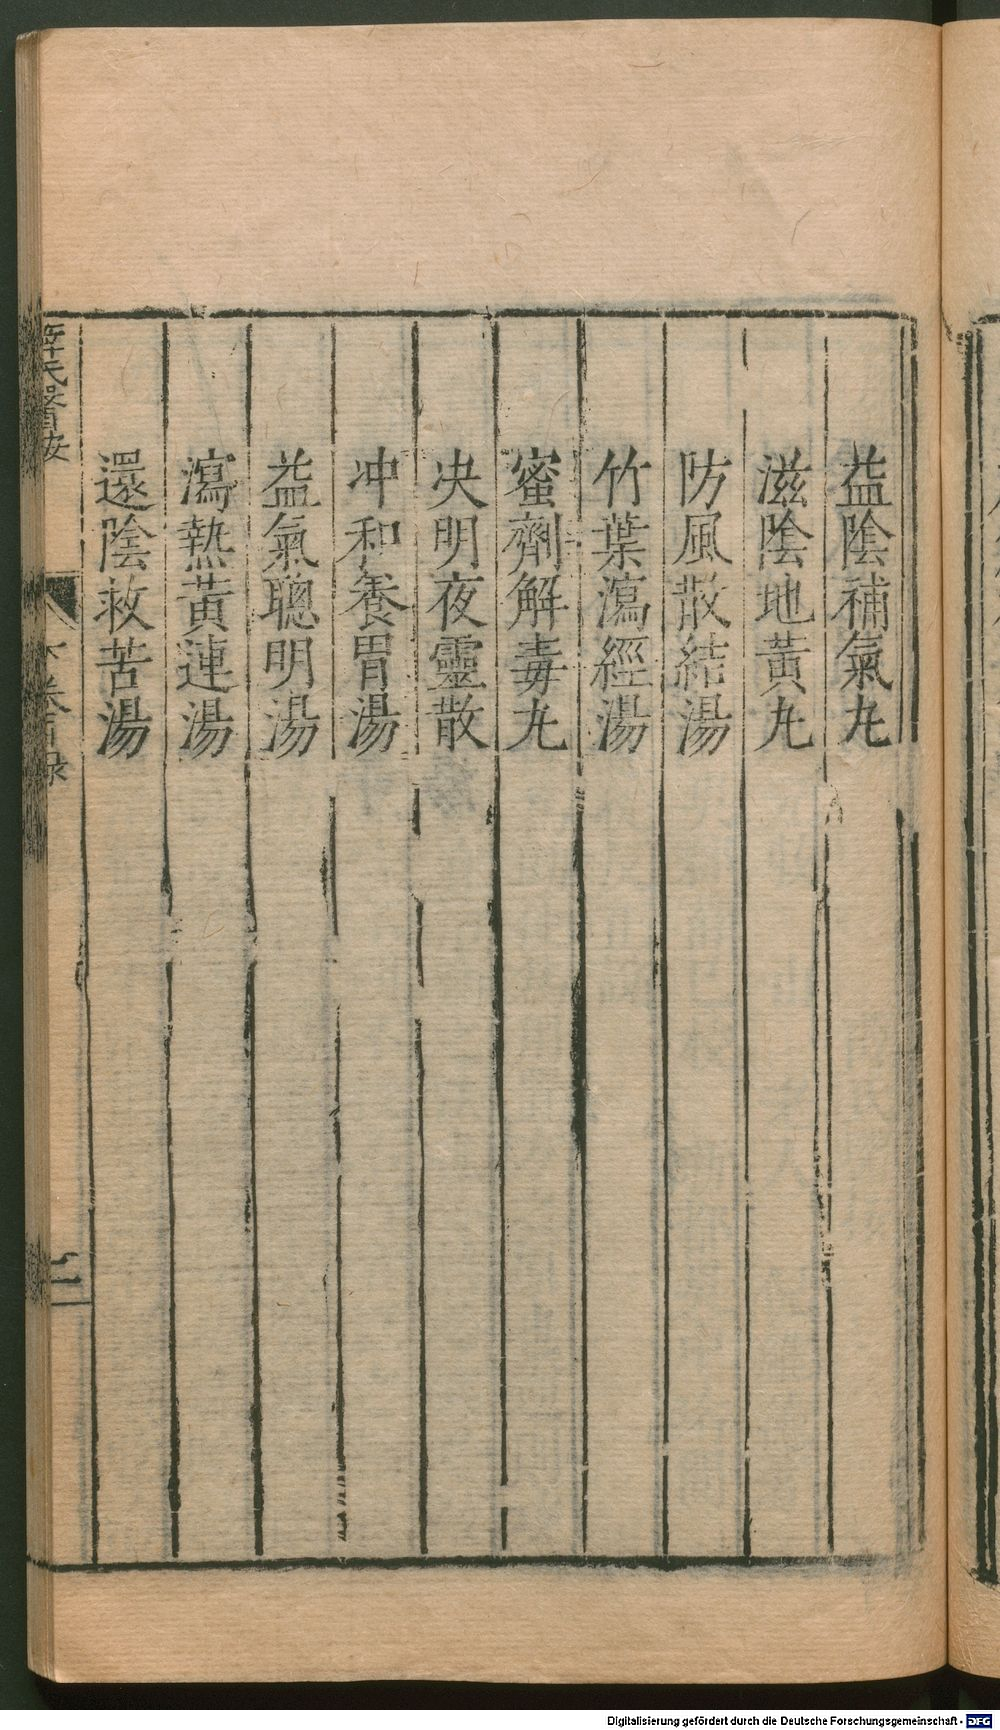 益陰補氣丸
滋陰地黃丸
防風散結湯
竹葉瀉經湯
蜜劑解毒丸
决明夜靈散
冲和養胃湯
益氣聰明湯
瀉熱黃連湯
還陰救苦湯
氏醫按
卷目錄
二
Digitalisierung gefördert durch die Deutsche Forschungsgemeinschaft - DFG